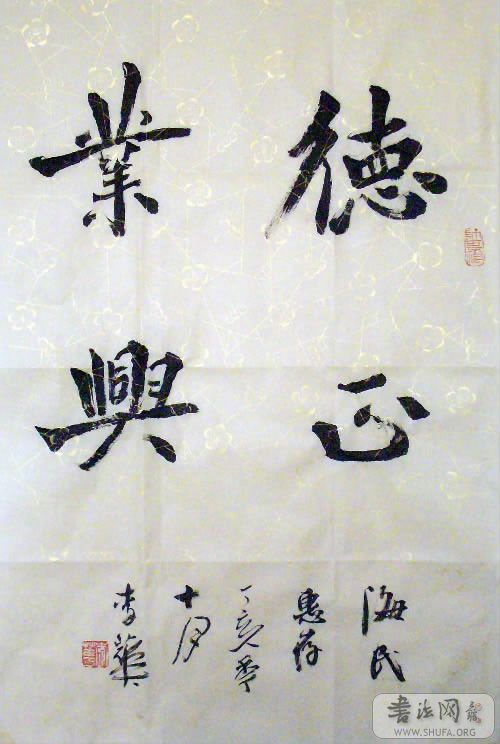 德正
業興
海民
惠存
丁亥年
十月
李
書法网
WWW.SHUFA.ORG